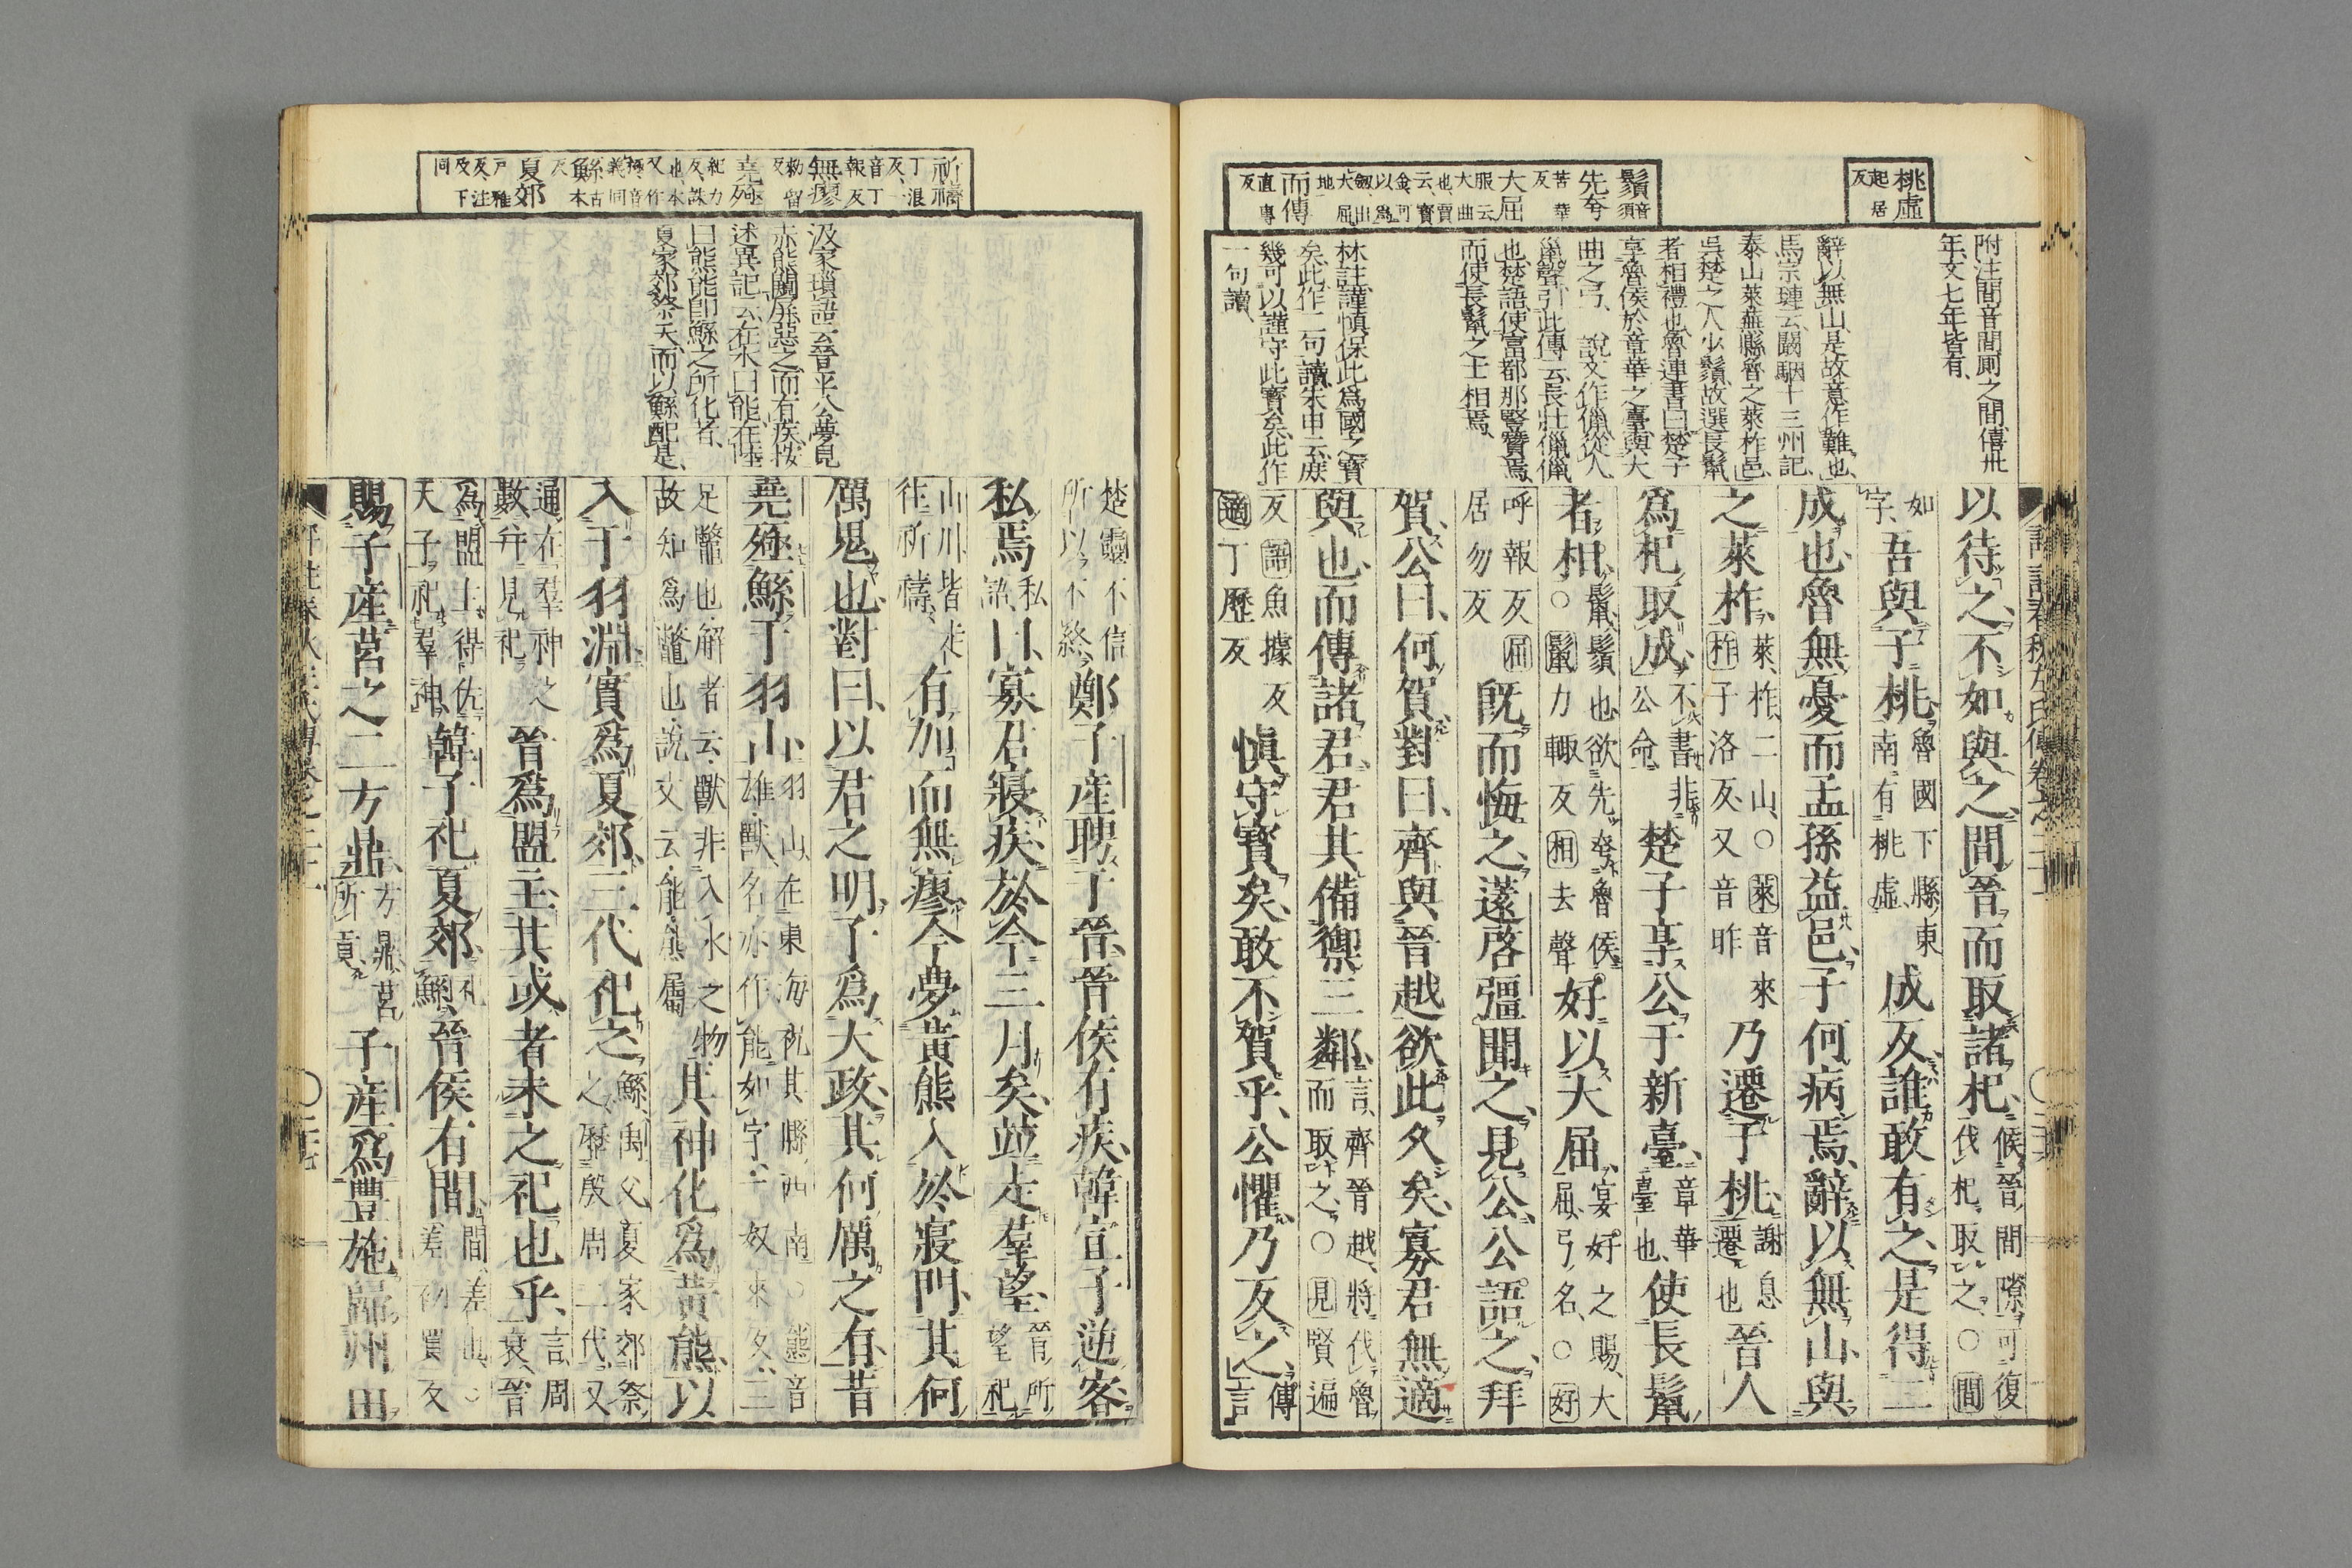 桃虛
起居
反
鬚音
須
先夸
苦華
反
大屈
服云
大曲
也賈
云寶
金可
以爲
劔出
大屈
地
而傳
直專
反
附注間音間厠之間僖卅
年文七年皆有
辭以無山是故意作難也
馬宗璉云闞駰十三州記
泰山萊蕪縣魯之萊柞邑
吳楚之人少鬚故選長鬣
者相禮也魯連書曰楚子
享魯侯於章華之臺與大
曲之弓 說文作儠從人
巤聲引此傳云長壯儠儠
也楚語使富都那豎贊焉
而使長鬣之士相焉
林註謹愼保此爲國之寶
矣此作二句讀朱申云庶
幾可以謹守此寶矣此作
一句讀
以待之不如與之間晉而取諸杞候晉間隙可復
伐杞取之○間
如字吾與子桃魯國卞縣東
南有桃虛成反誰敢有之是得二
成也魯無憂而孟孫益邑子何病焉辭以無山與
之萊柞萊柞二山○萊音來
柞子洛反又音昨乃遷于桃謝息
遷也晉人
爲杞取成不書非
公命楚子享公于新臺章華
臺也使長鬣
者相鬣鬚也欲先夸魯侯
○鬣力輒反相去聲好以大屈宴好之賜大
屈弓名○好
呼報反屈
居勿反既而悔之薳啓彊聞之見公公語之拜
賀公曰何賀對曰齊與晉越欲此久矣寡君無適
與也而傳諸君君其備禦三鄰言齊晉越將伐魯
而取之○見賢遍
反語魚據反
適丁歷反愼守寶矣敢不賀乎公懼乃反之傳言
楚靈不信
所以不終鄭子產聘于晉晉侯有疾韓宣子逆客
私焉私
語曰寡君寢疾於今三月矣並走羣望晉所
望祀
山川皆走
往祈禱有加而無瘳今夢黃熊入於寢門其何
厲鬼也對曰以君之明子爲大政其何厲之有昔
堯殛鯀于羽山羽山在東海祝其縣西南○熊音
雄獸名亦作能如字一奴來反三
足鼈也解者云獸非入水之物
故知爲鼈也說文云能熊屬其神化爲黃熊以
入于羽淵實爲夏郊三代祀之鯀禹父夏家郊祭
之歷殷周二代又
通在羣神之
數幷見祀晉爲盟主其或者未之祀也乎言周
衰晉
爲盟主得佐
天子祀羣神韓子祀夏郊祀
鯀晉侯有間間差也○
差初賣反
賜子產莒之二方鼎方鼎莒
所貢子產爲豐施歸州田
祈禱
丁浪
反一
音丁
報反
無瘳
勑留
反
堯殛
紀力
反誅
也本
又作
極音
義同
鯀古
本
反
夏郊
戸雅
反注
及下
同
汲冢瑣語云晉平公夢見
赤熊闚屏惡之而有疾按
述異記云在水曰能在陸
曰熊熊卽鯀之所化者
夏家郊祭天而以鯀配是